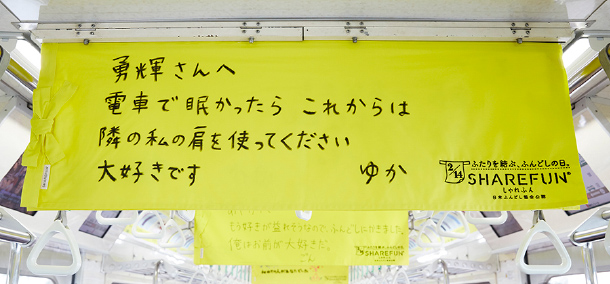 勇輝さんへ
電車で眠かったら これからは
隣の私の肩を使ってください
大好きです ゆか
2/14
ふたりを結ぶ、ふんどしの日。
SHAREFUN®
しゃれふん
日本ふんどし協会公認
もう好きが溢れそうなので、ふんどしにかきました。
俺はお前が大好きだ。
ごん
SHAREFUN